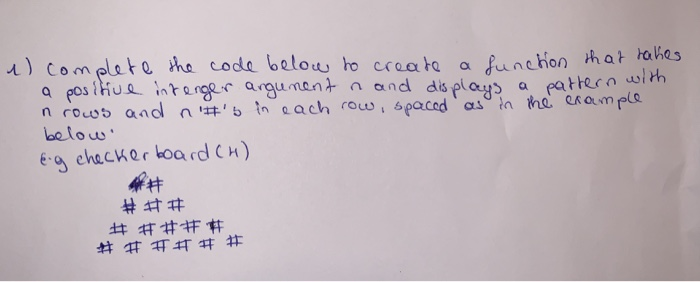 1) Complete the code below to create a function that takes
a positive interger argument n and displays a pattern with
n rows and n '#'s in each row, spaced as in the example
below.
E.g checkerboard (H)
##
# # #
# # # # #
# # # # # #